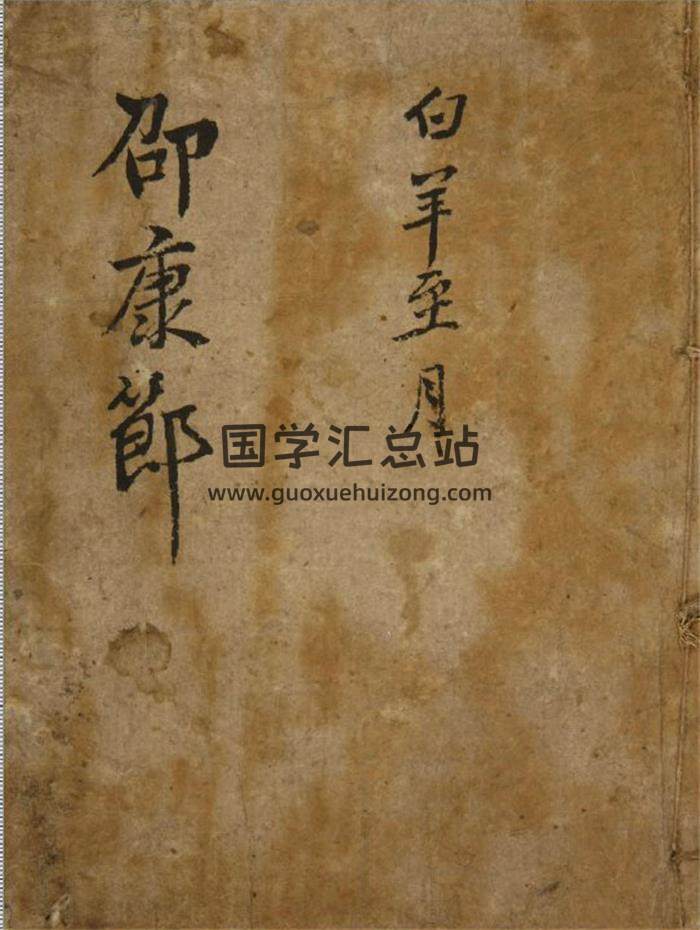 白羊至月
邵康節
国学汇总站
www.guoxuehuizong.com